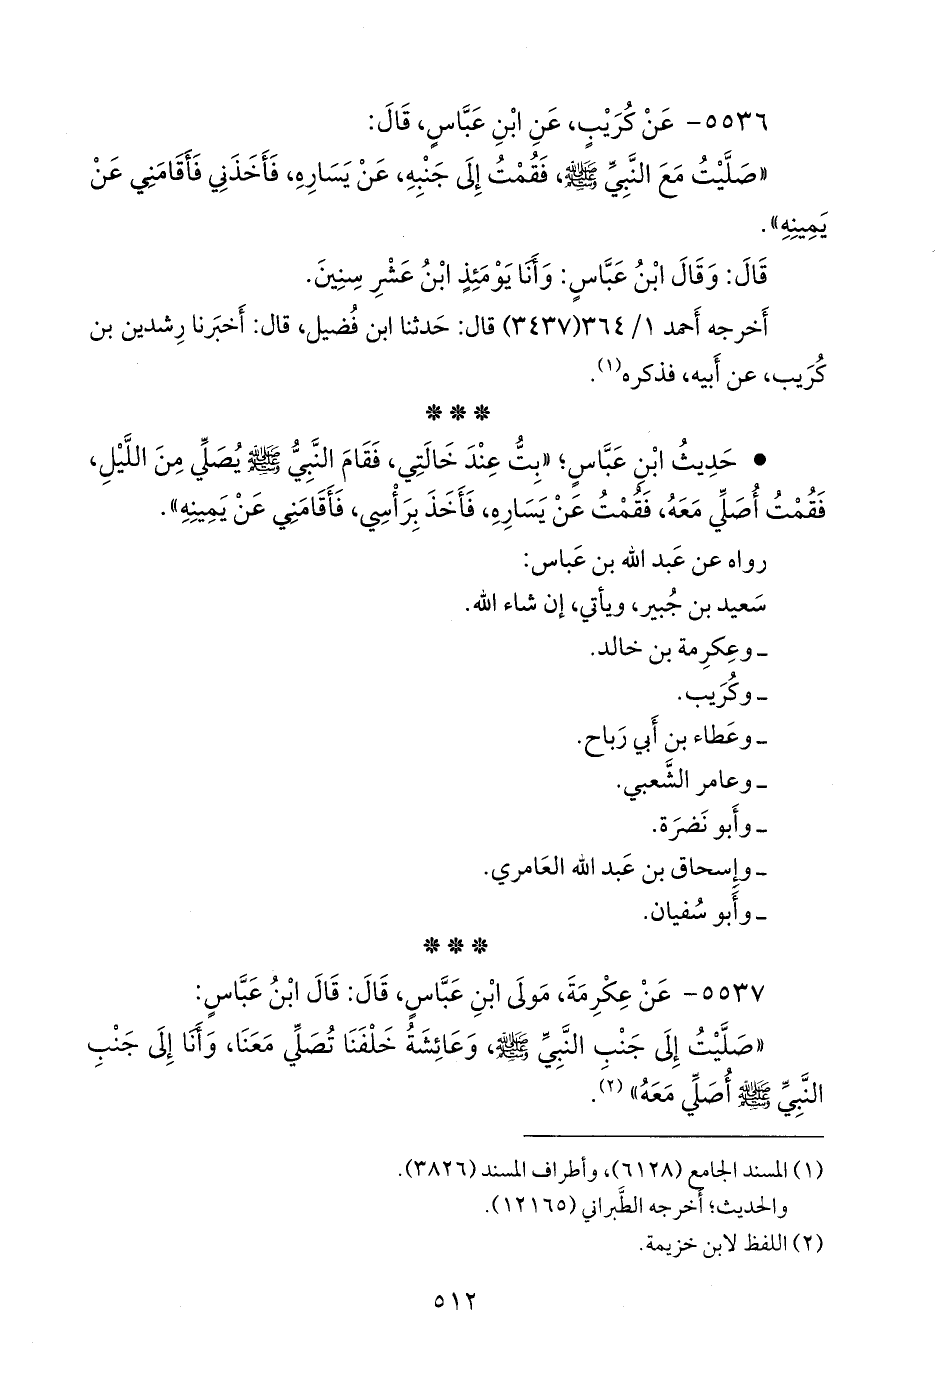 ٥٥٣٦- عَنْ كُرَيْبٍ، عَنِ ابْنِ عَبَّاسٍ، قَالَ:
«صَلَّيْتُ مَعَ النَّبِيِّ ﷺ، فَقُمْتُ إِلَى جَنْبِهِ، عَنْ يَسَارِهِ، فَأَخَذَنِي فَأَقَامَنِي عَنْ
يَمِينِهِ».
قَالَ: وَقَالَ ابْنُ عَبَّاسٍ: وَأَنَا يَوْمَئِذٍ ابْنُ عَشْرِ سِنِينَ.
أَخرجه أَحمد ١/ ٣٦٤(٣٤٣٧) قال: حَدثنا ابن فُضيل، قال: أَخبَرنا رِشدين بن
كُرَيب، عن أَبيه، فذكره(١).
* * *
• حَدِيثُ ابْنِ عَبَّاسٍ؛ «بِتُّ عِنْدَ خَالَتِي، فَقَامَ النَّبِيُّ ﷺ يُصَلِّي مِنَ اللَّيْلِ،
فَقُمْتُ أُصَلِّي مَعَهُ، فَقُمْتُ عَنْ يَسَارِهِ، فَأَخَذَ بِرَأْسِي، فَأَقَامَنِي عَنْ يَمِينِهِ».
رواه عن عَبد الله بن عَباس:
سَعيد بن جُبير، ويأتي، إن شاء الله.
ـ وعِكرِمة بن خالد.
ـ وكُرَيب.
ـ وعَطاء بن أَبي رَباح.
ـ وعامر الشَّعبي.
ـ وأَبو نَضرَة.
ـ وإِسحاق بن عَبد الله العَامري.
ـ وأَبو سُفيان.
* * *
٥٥٣٧- عَنْ عِكْرِمَةَ، مَولَى ابْنِ عَبَّاسٍ، قَالَ: قَالَ ابْنُ عَبَّاسٍ:
«صَلَّيْتُ إِلَى جَنْبِ النَّبِيِّ ﷺ، وَعَائِشَةُ خَلْفَنَا تُصَلِّي مَعَنَا، وَأَنَا إِلَى جَنْبِ
النَّبِيِّ ﷺ أُصَلِّي مَعَهُ»(٢).
(١) المسند الجامع (٦١٢٨)، وأطراف المسند (٣٨٢٦).
والحديث؛ أَخرجه الطَّبراني (١٢١٦٥).
(٢) اللفظ لابن خزيمة.
٥١٢